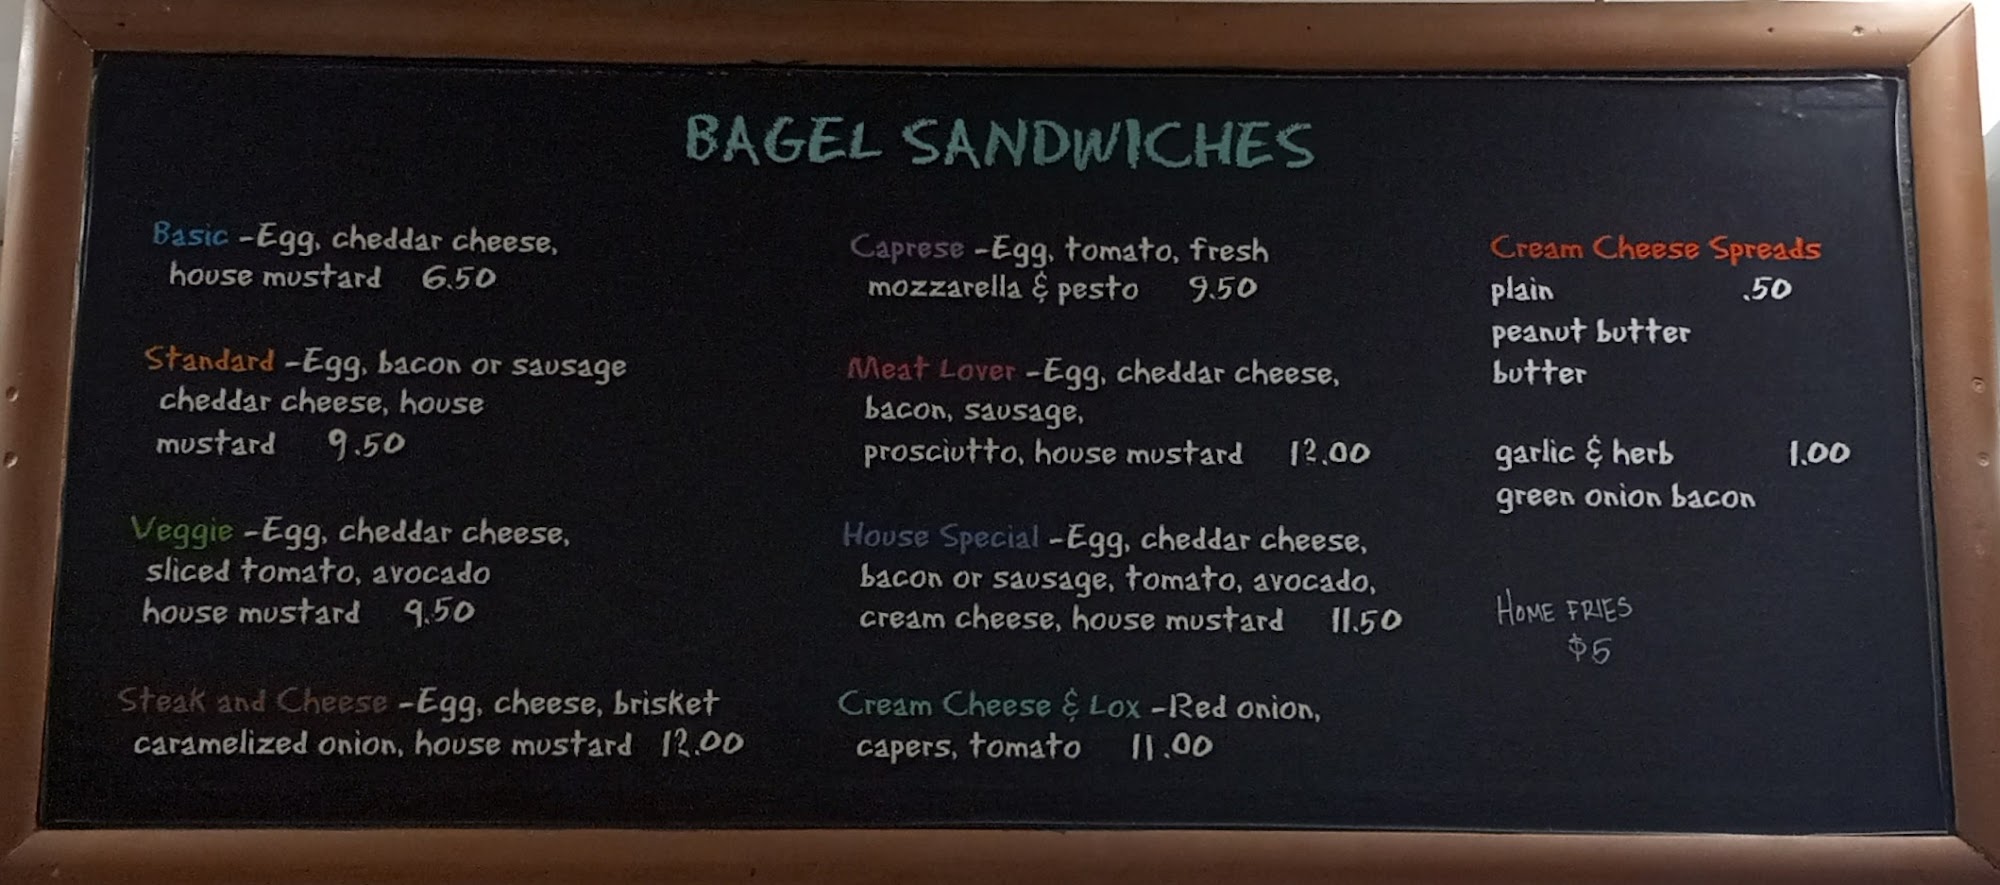 BAGEL SANDWICHES
Basic -Egg, cheddar cheese,
house mustard 6.50
Standard -Egg, bacon or sausage
cheddar cheese, house
mustard 9.50
Veggie -Egg, cheddar cheese,
sliced tomato, avocado
house mustard 9.50
Steak and Cheese -Egg, cheese, brisket
caramelized onion, house mustard 12.00
Caprese -Egg, tomato, fresh
mozzarella & pesto 9.50
Meat Lover -Egg, cheddar cheese,
bacon, sausage,
prosciutto, house mustard 12.00
House Special -Egg, cheddar cheese,
bacon or sausage, tomato, avocado,
cream cheese, house mustard 11.50
Cream Cheese & Lox -Red onion,
capers, tomato 11.00
Cream Cheese Spreads
plain .50
peanut butter
butter
garlic & herb 1.00
green onion bacon
HOME FRIES
$5